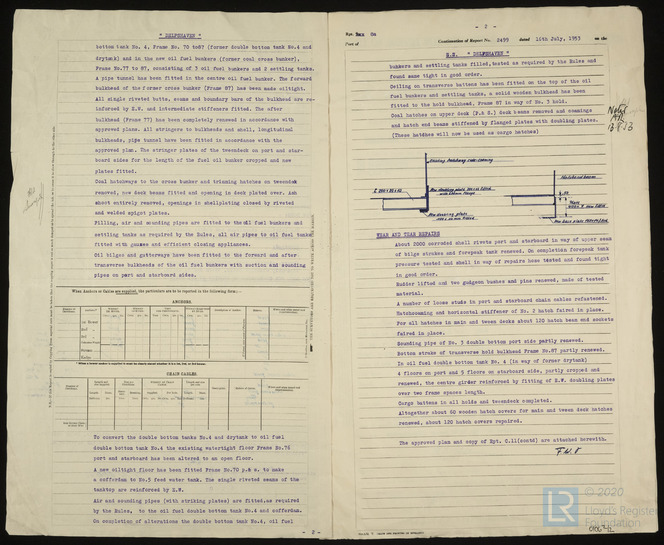 " DELFHAVEN "
bottom tank No. 4, Frame No. 70 to87 (former double bottom tank No.4 and
drytank) and in the new oil fuel bunkers (former coal cross bunker),
Frame No.77 to 87, consisting of 3 oil fuel bunkers and 2 settling tanks.
A pipe tunnel has been fitted in the centre oil fuel bunker. The forward
bulkhead of the former cross bunker (Frame 87) has been made oiltight.
All single rivated butts, seams and boundary bars of the bulkhead are re-
inforced by E.W. and intermediate stiffeners fitted. The after
bulkhead (Frame 77) has been completely renewed in accordance with
approved plans. All stringers to bulkheads and shell, longitudinal
bulkheads, pipe tunnel have been fitted in accordance with the
approved plan. The stringer plates of the tweendeck on port and star-
board sides for the length of the fuel oil bunker cropped and new
plates fitted.
Coal hatchways to the cross bunker and trimming hatches on tweendeck
removed, new deck beams fitted and opening in deck plated over. Ash
shoot entirely removed, openings in shellplating closed by riveted
and welded spigot plates.
Filling, air and sounding pipes are fitted to the oil fuel bunkers and
settling tanks as required by the Rules, all air pipes to oil fuel tanks
fitted with gauzes and efficient closing appliances.
Oil tilges and gutterways have been fitted to the forward and after
transverse bulkheads of the oil fuel bunkers with suction and sounding
pipes on port and starboard sides.
When Anchors or Cables are supplied, the particulars are to be reported in the following form:—
ANCHORS.
CHAIN CABLES.
To convert the double bottom tanks No.4 and drytank to oil fuel
double bottom tank No.4 the existing watertight floor Frame No.76
port and starboard has been altered to an open floor.
A new oiltight floor has been fitted Frame No.70 p & s. to make
a cofferdam to No.5 feed water tank. The single riveted seams of the
tanktop are reinforced by E.W.
Air and sounding pipes (with striking plates) are fitted,as required
by the Rules, to the oil fuel double bottom tank No.4 and cofferdam.
On completion of alterations the double bottom tank No.4, oil fuel
- 2 -
- 2 -
Continuation of Report No. 2499 dated 16th July, 1953 on the
S.S. " DELFHAVEN "
bunkers and settling tanks filled,tested as required by the Rules and
found same tight in good order.
Ceiling on transverse battens has been fitted on the top of the oil
fuel bunkers and settling tanks, a solid wooden bulkhead has been
fitted to the hold bulkhead, Frame 87 in way of No. 3 hold.
Coal hatches on upper deck (P.& S.) deck beams removed and coamings
and hatch end beams stiffened by flanged plates with doubling plates.
(These hatches will now be used as cargo hatches)
WEAR AND TEAR REPAIRS
About 2000 corroded shell rivets port and starboard in way of upper seam
of bilge strakes and forepeak tank renewed. On completion forepeak tank
pressure tested and shell in way of repairs hose tested and found tight
in good order.
Rudder lifted and two gudgeon bushes and pins renewed, made of tested
material.
A number of loose studs in port and starboard chain cables refastened.
Hatchcoaming and horizontal stiffener of No. 2 hatch faired in place.
For all hatches in main and tween decks about 120 hatch beam end sockets
faired in place.
Sounding pipe of No. 3 double bottom port side partly renewed.
Bottom strake of transverse hold bulkhead Frame No.87 partly renewed.
In oil fuel double bottom tank No. 4 (in way of former drytank)
4 floors on port and 5 floors on starboard side, partly cropped and
renewed, the centre girder reinforced by fitting of E.W. doubling plates
over two frame spaces length.
Cargo battens in all holds and tweendeck completed.
Altogether about 60 wooden hatch covers for main and tween deck hatches
renewed, about 120 hatch covers repaired.
The approved plan and copy of Rpt. C.11(contd) are attached herewith.
LR
© 2020
Lloyd's Register
Foundation